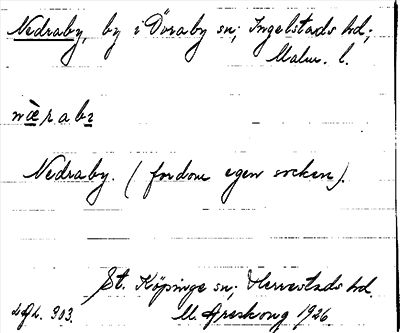 Nedraby, by i Öraby sn; Ingelstads hd;
Malm. l.
næ̀rabɪ
Nedraby. (fordom egen socken).
St. Köpinge sn; Herrestads hd.
303. M. Areskoug 1926